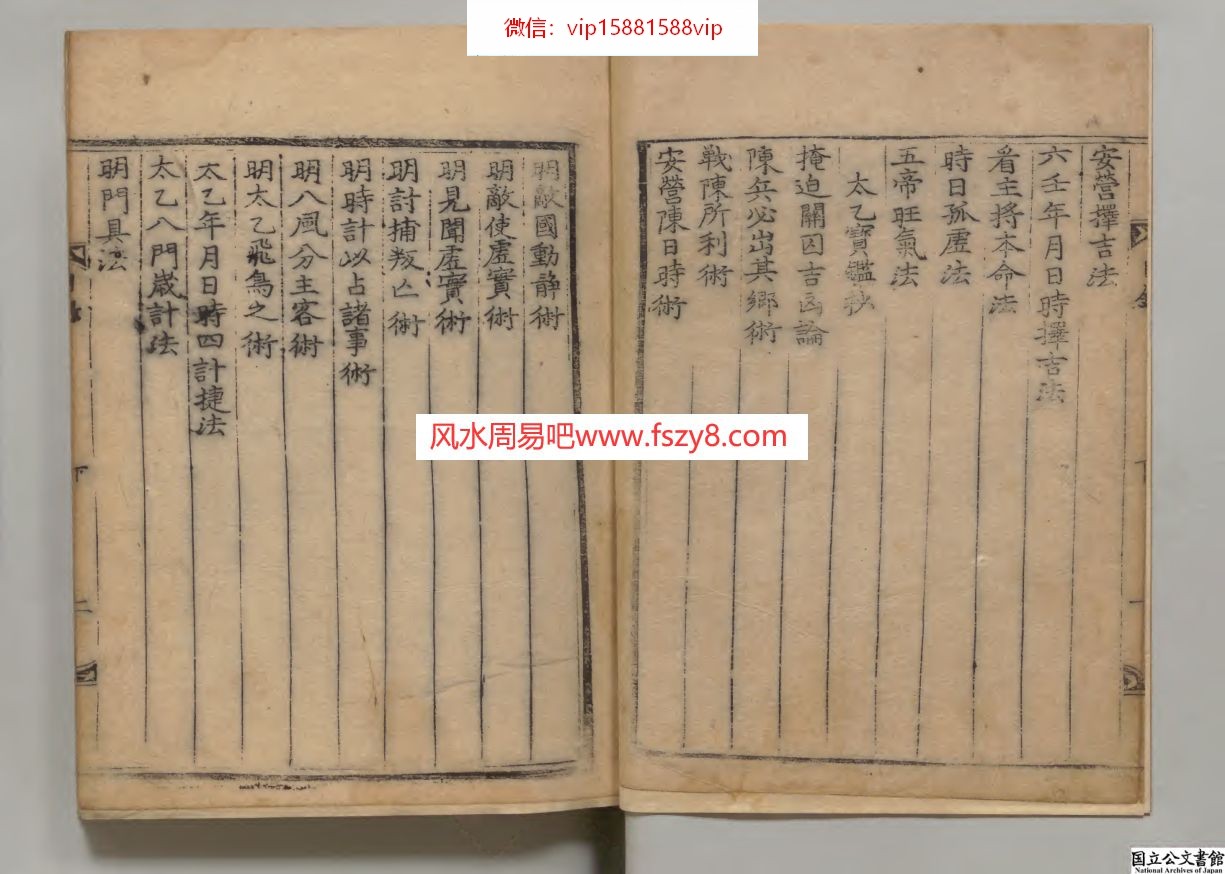 微信：vip15881588vip
安營擇吉法
六壬年月日時擇吉法
看主將本命法
時日孤虛法
五帝旺氣法
太乙寶鑑抄
掩迫關囚吉凶論
陳兵必出其鄉術
戰陳所利術
安營陳日時術
明敵國動静術
明敵使虛實術
明見聞虛實術
明討捕叛亡術
明時計以占諸事術
明八風分主客術
明太乙飛鳥之術
太乙年月日時四計捷法
太乙八門歲計法
明門具法
下
二
风水周易吧www.fszy8.com
国立公文書館
National Archives of Japan